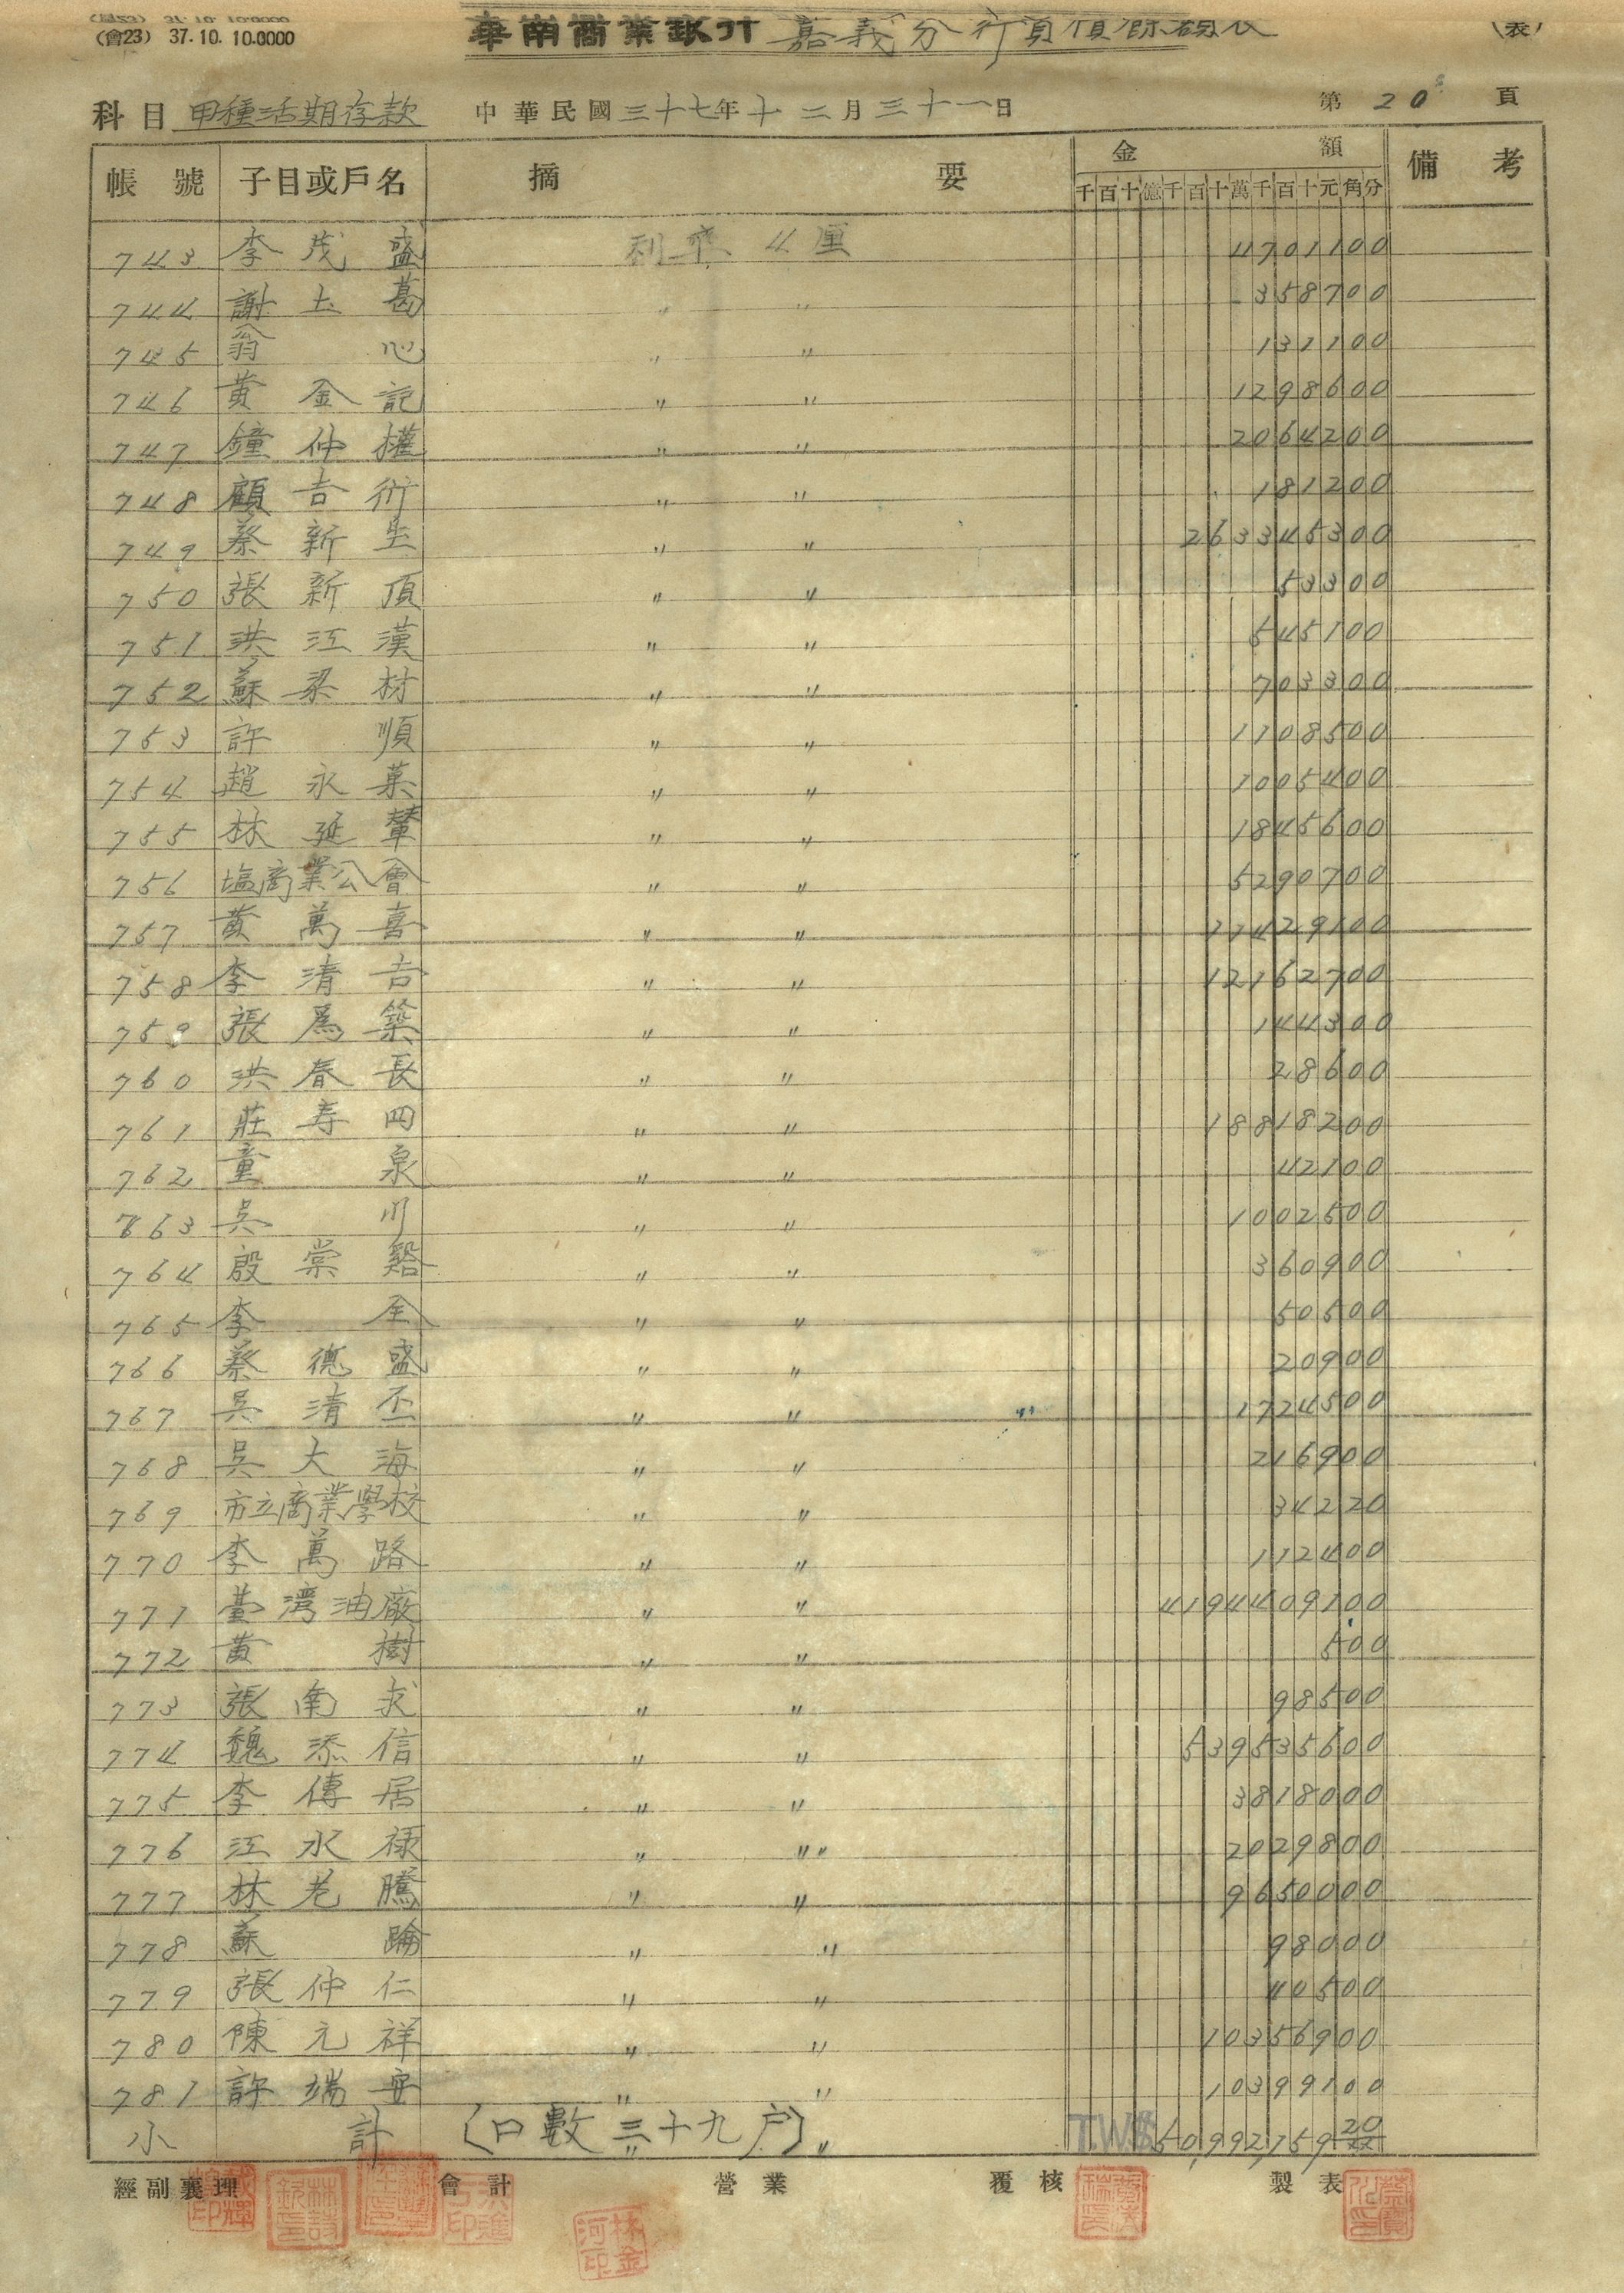 (會23) 37.10.10.0000
華南商業銀行 嘉義分行負債餘額表
(表)
科目 甲種活期存款 中華民國三十七年十二月三十一日 第20頁
帳號 子目或戶名 摘要 金額 備考
千百十億千百十萬千百十元角分
743 李茂盛 利率 4厘 4701100
744 謝土葛 〃 〃 358700
745 翁心 〃 〃 131100
746 黃金記 〃 〃 1298600
747 鐘仲權 〃 〃 2064200
748 顧吉衍 〃 〃 181200
749 蔡新生 〃 〃 263345300
750 張新頂 〃 〃 53300
751 洪江漢 〃 〃 545100
752 蘇梁材 〃 〃 703300
753 許順 〃 〃 1108500
754 趙永菓 〃 〃 1005400
755 林延輦 〃 〃 1845600
756 塩商業公會 〃 〃 5290700
757 黃萬喜 〃 〃 11429100
758 李清吉 〃 〃 12162700
759 張為築 〃 〃 144300
760 洪春長 〃 〃 28600
761 莊寿四 〃 〃 18818200
762 童泉 〃 〃 42100
763 吳川 〃 〃 1002500
764 殷棠谿 〃 〃 360900
765 李全 〃 〃 50500
766 蔡德盛 〃 〃 20900
767 吳清丕 〃 〃 1724500
768 吳大海 〃 〃 216900
769 市立商業學校 〃 〃 34220
770 李萬路 〃 〃 112400
771 臺灣油廠 〃 〃 4194409100
772 黃樹 〃 〃 500
773 張南求 〃 〃 98500
774 魏添信 〃 〃 539535600
775 李傳居 〃 〃 3818000
776 江水祿 〃 〃〃 2029800
777 林老騰 〃 〃 9650000
778 蘇踚 〃 〃 98000
779 張仲仁 〃 〃 40500
780 陳元祥 〃 〃 10356900
781 許瑞安 〃 〃 10399100
小計 〔口數三十九戶〕 〃 〃 T.W$50,992,759 20
經副襄理 會計 營業 覆核 製表
林金河印